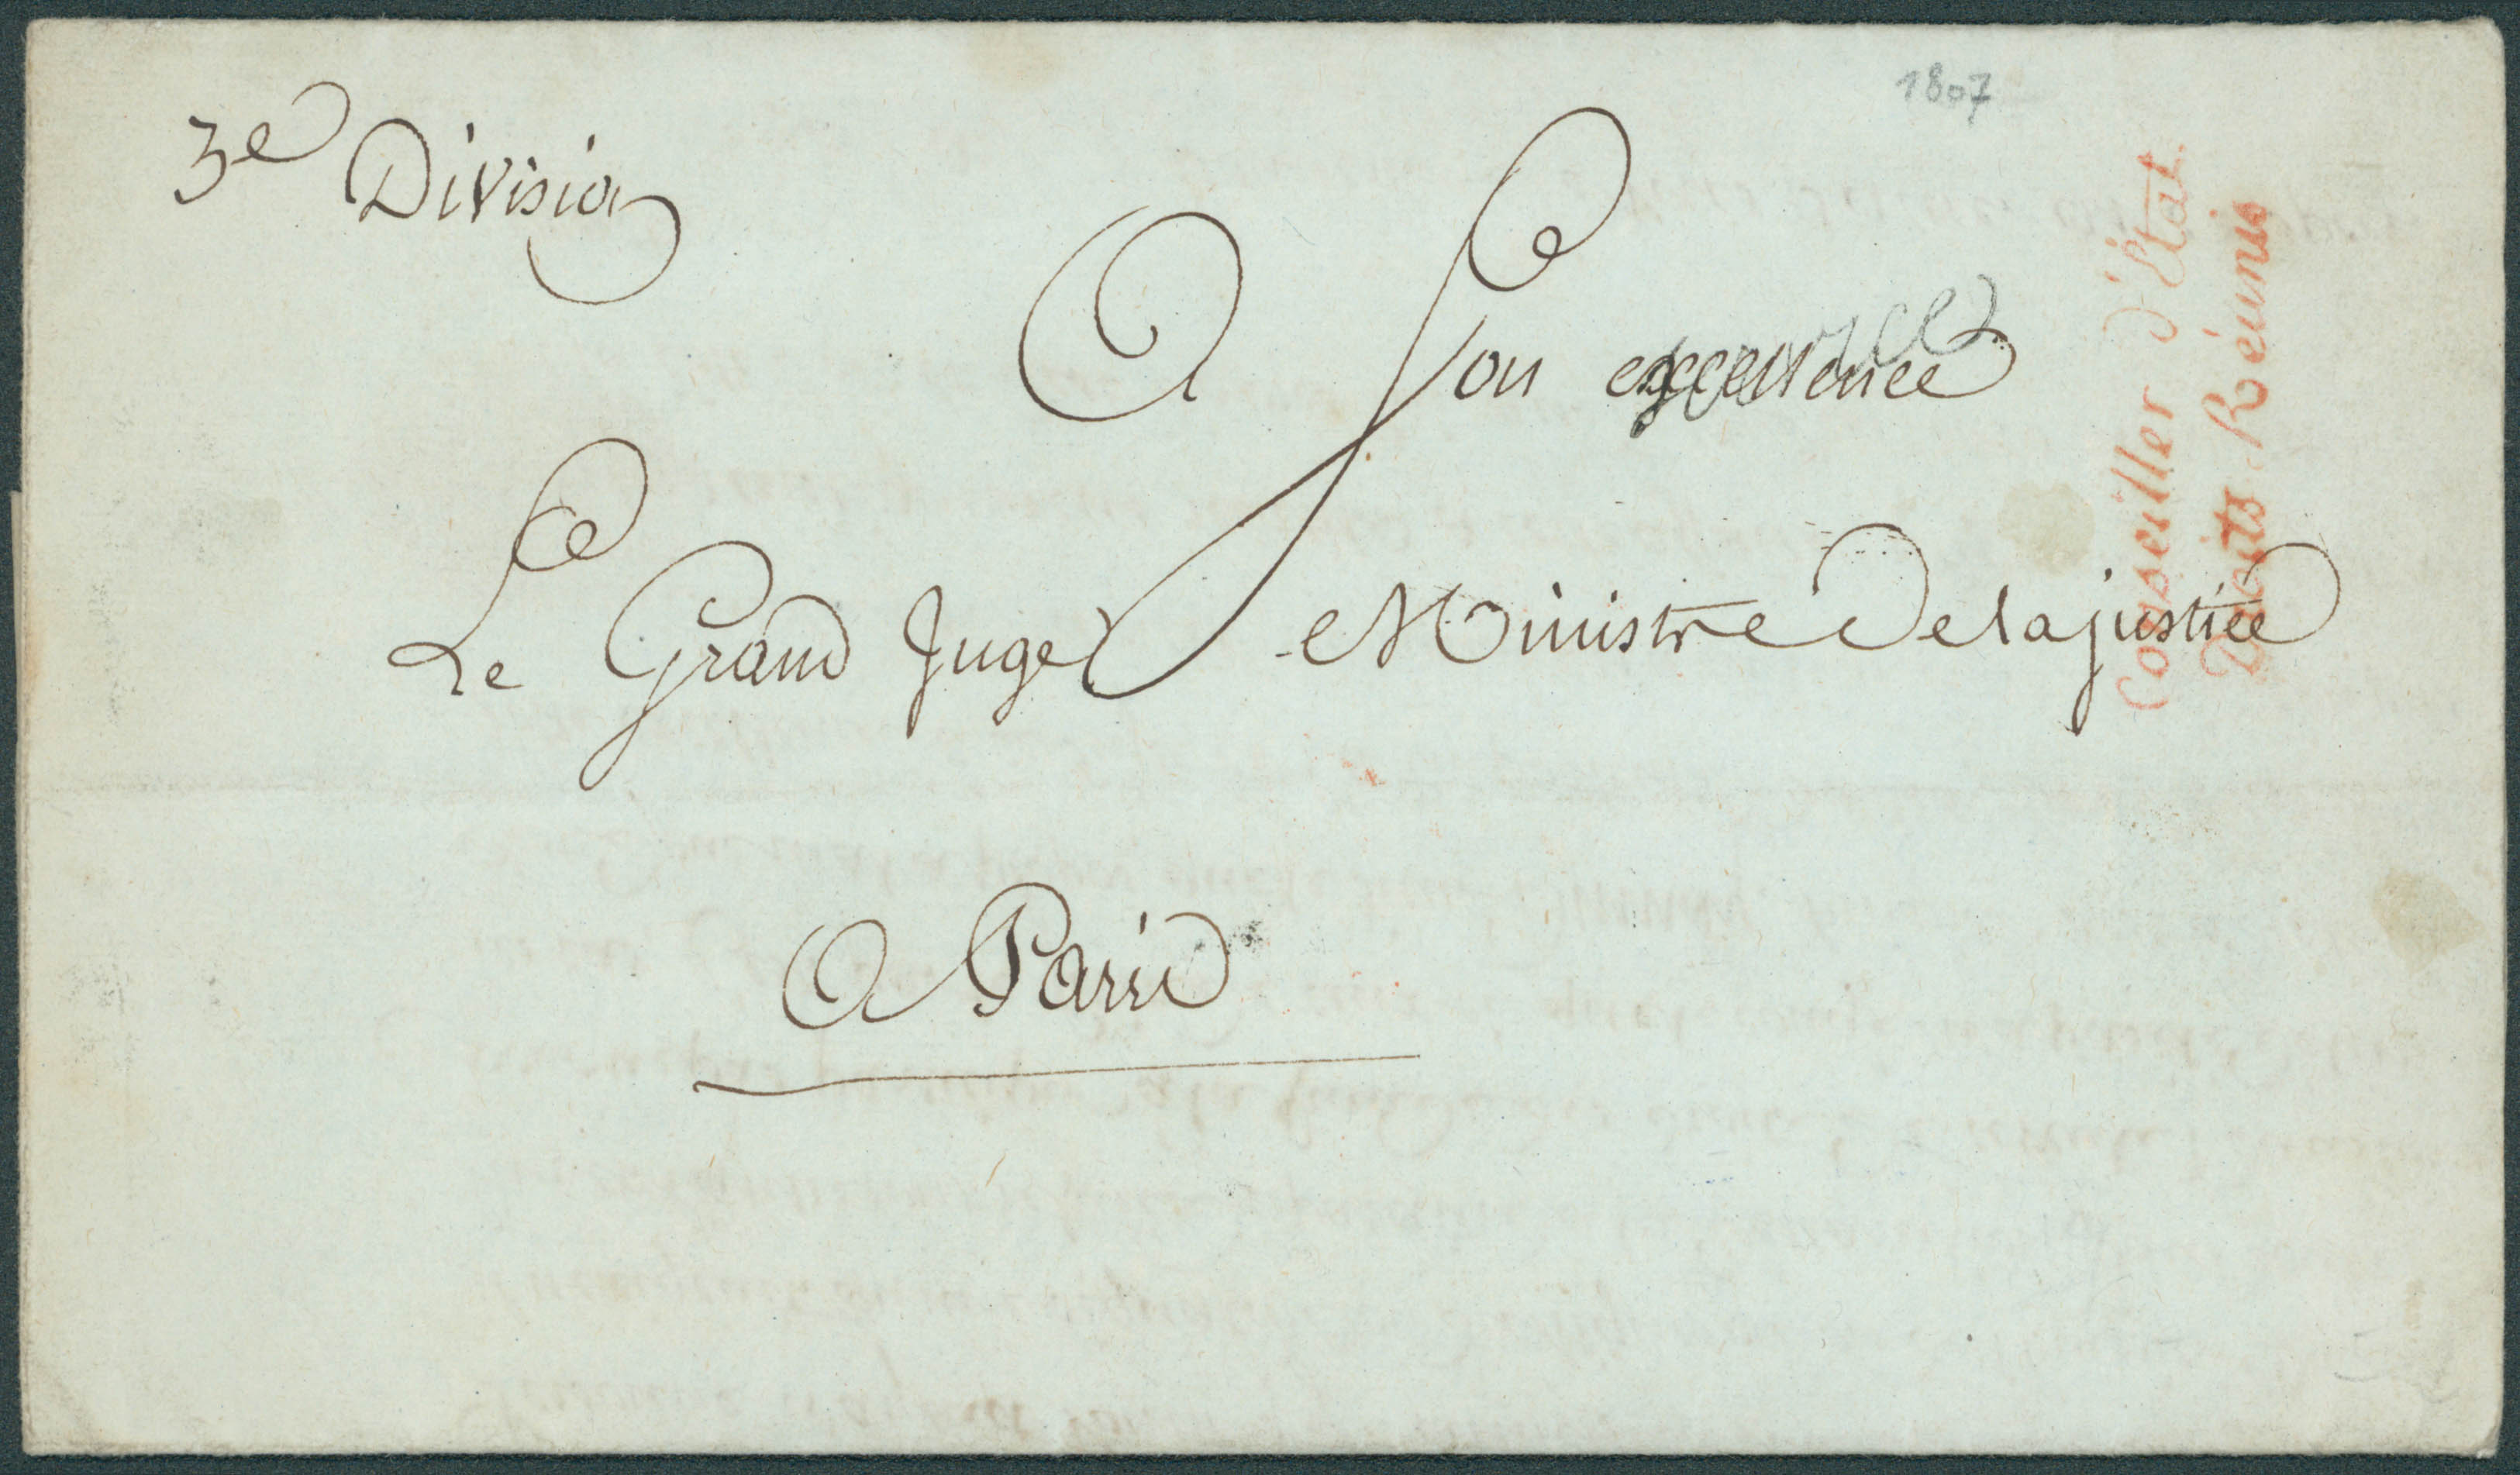 1807
3e Division
A Son excellence
Le Grand Juge Ministre De la justice
A Paris
Conseiller d'État.
Droits Réunis